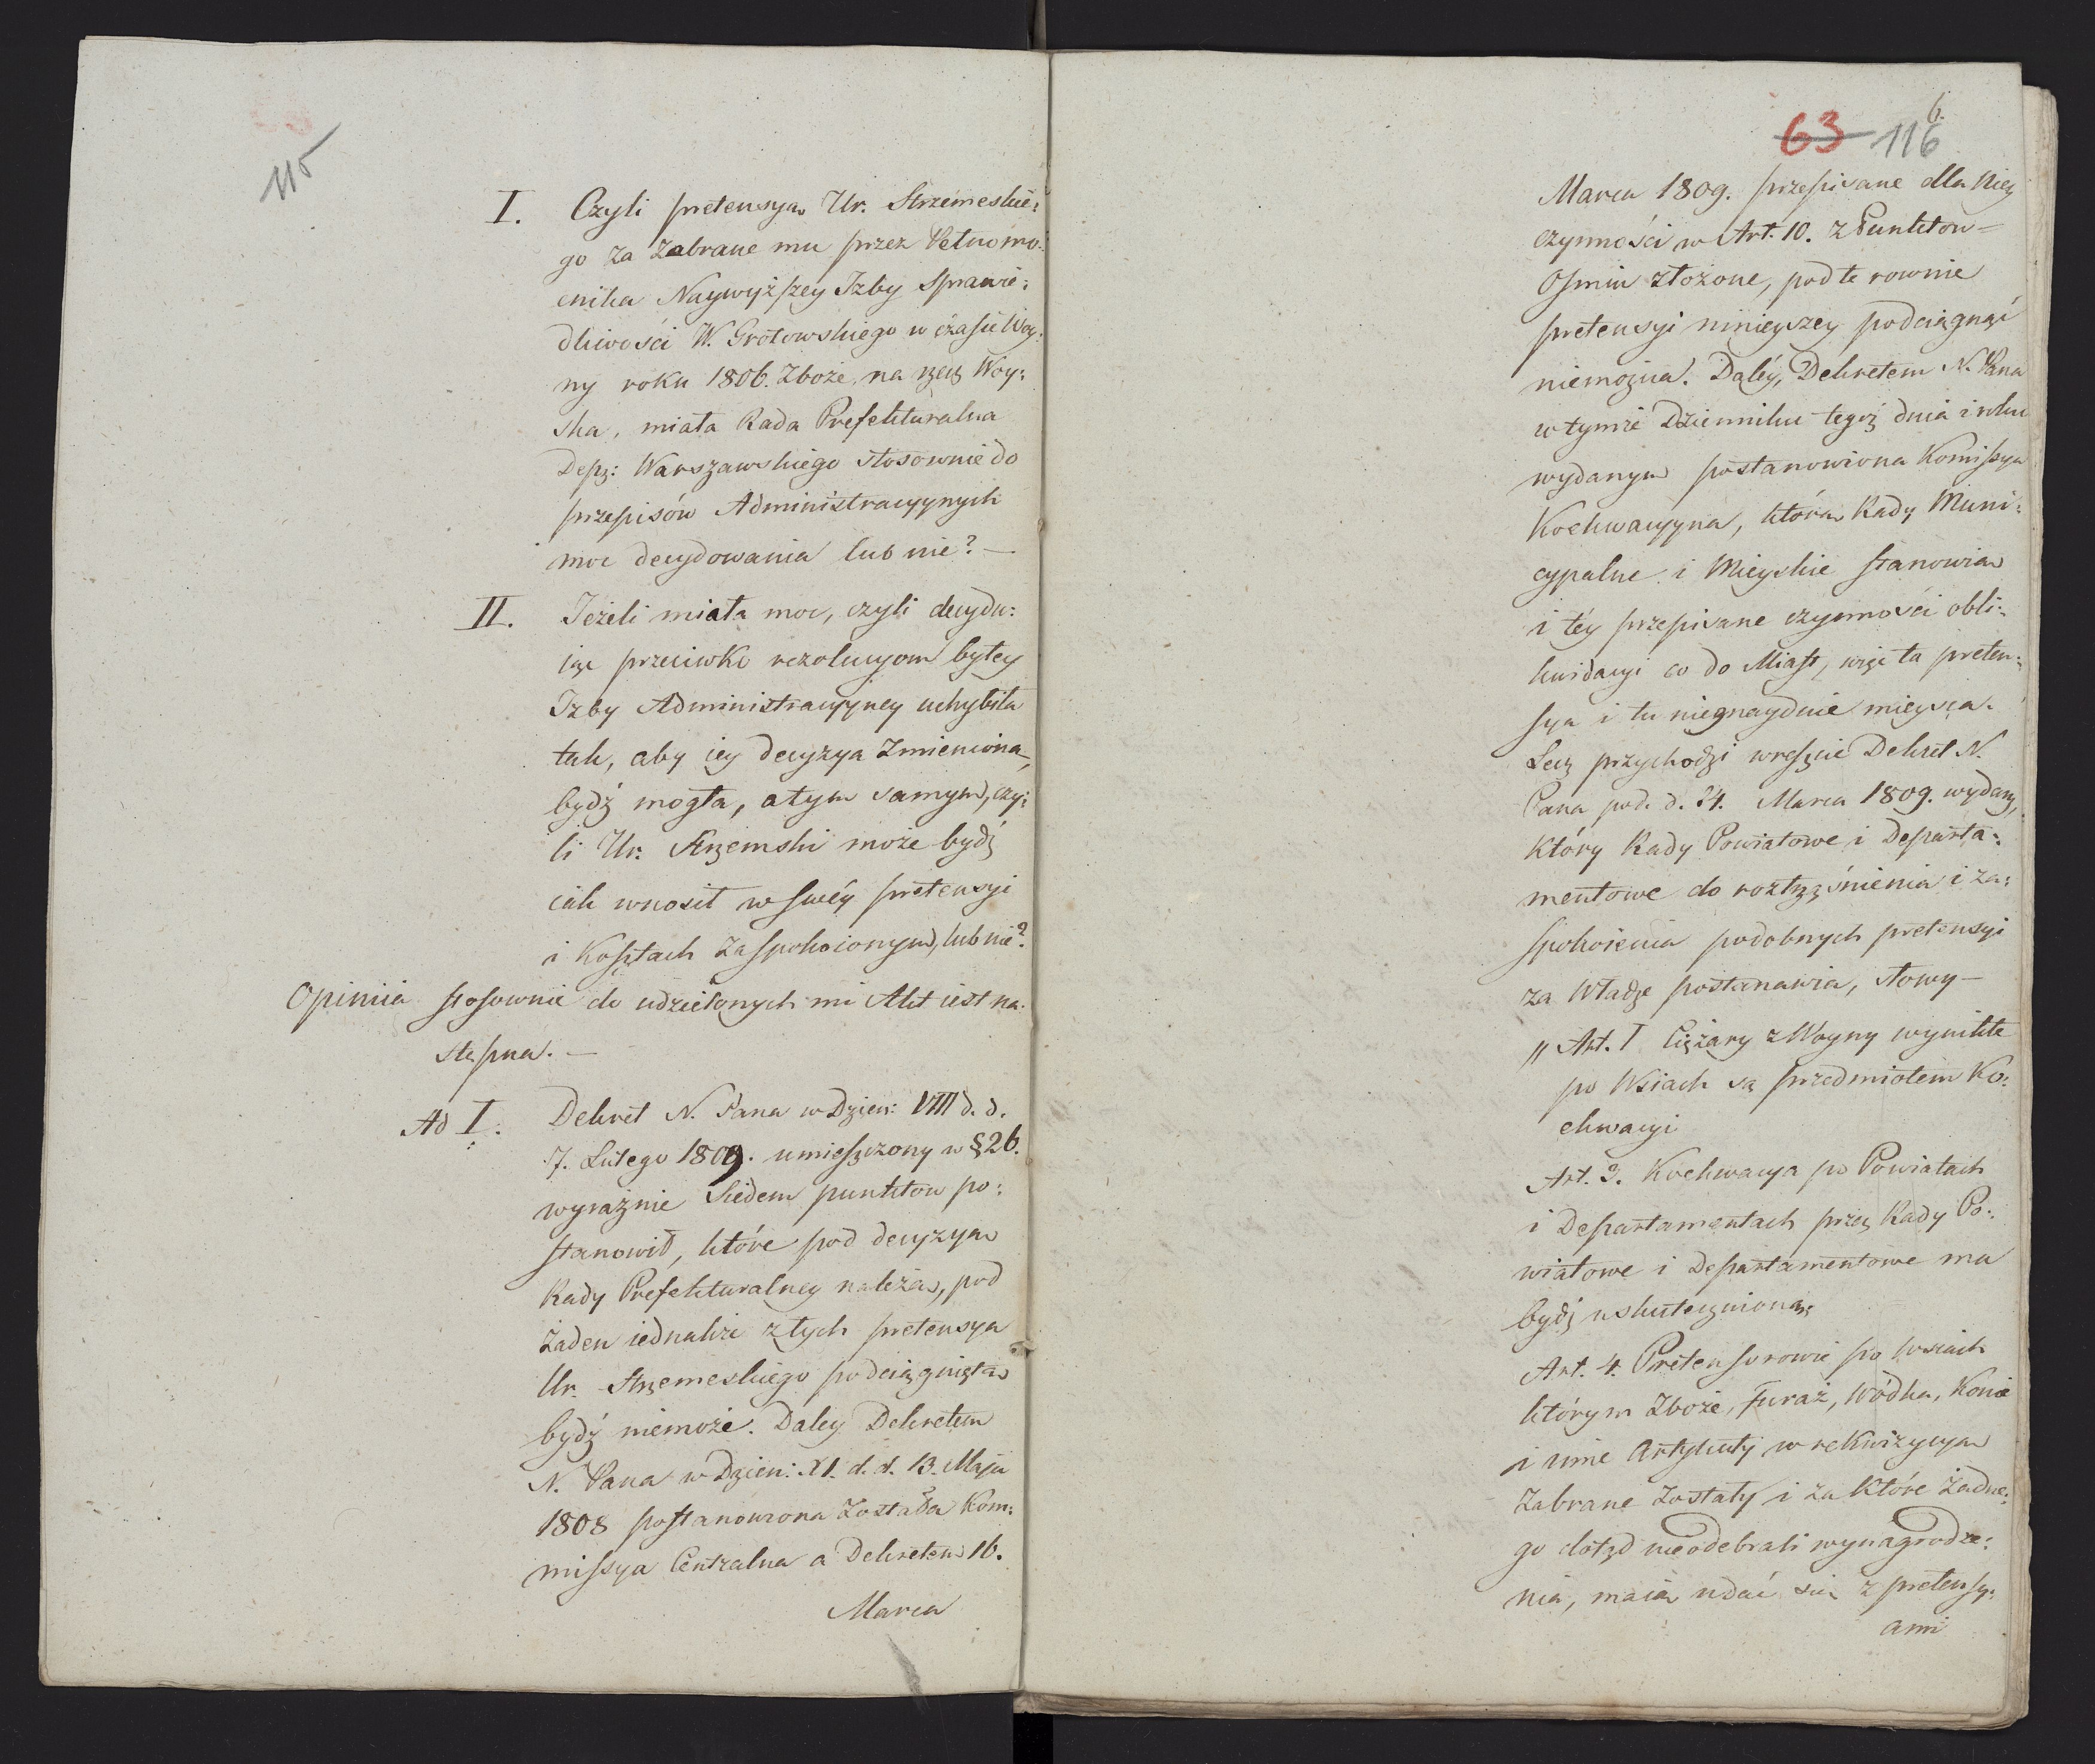 115
I. Czyli pretensya Ur. Strzemeskie:
go za zabrane mu przez Pełnomo:
cnika Naywyższey Izby Sprawie:
dliwości W. Grotowskiego w czasie Woy:
ny roku 1806. Zboże, na rzecz Woy:
ska, miała Rada Prefekturalna
Dep: Warszawskiego stosownie do
przepisów Administracyynych
moc decydowania lub nie? —
II. Jeżeli miała moc, czyli decydu:
iąc przeciwko rezolucyom byłey
Izby Administracyyney uchybiła
tak, aby iey decyzya zmieniona,
bydź mogła, a tym samym, czy:
li Ur. Strzemski może bydź
iak wnosił w swéy pretensyi
i Kosztach zaspokoionym, lub nie?
Opiniia stosownie do udzielonych mi Akt iest na:
stępna. —
Ad I. Dekret N. Pana w Dzien: VIII d. d.
7. Lutego 1809. umieszczony w § 26.
wyraźnie Siedem punktow po:
stanowił, które pod decyzyą
Rady Prefekturalney należą, pod
żaden iednakże z tych pretensya
Ur. Strzemeskiego podciągnięta
bydź niemoże. Daley Dekretem
N. Pana w Dzien: XI. d. d. 13. Maja
1808 postanowiona Została Kom:
missya Centralna a Dekretem 16.
Marca
63 116
6.
Marca 1809. przepisane dla Niey
czynności w Art. 10. z Punktow —
Ośmiu złożone, pod te rownie
pretensyi ninieyszey podciągnąć
niemożna. Daléy, Dekretem N. Pana
w tymże Dzienniku tegoż dnia i roku
wydanym postanowiona Komissya
Koekwacyyna, którą Rady Muni:
cypalne i Mieyskie stanowią
i téy przepisane czynności obli:
kwidacyi co do Miast, więc ta preten:
sya i tu nieznaydzie mieysca.
Lecz przychodzi wreszcie Dekret N.
Pana pod d. 24. Marca 1809. wydany,
który Rady Powiatowe i Departa:
mentowe do roztrząśnienia i za:
spokoienia podobnych pretensyi
za Władze postanawia, słowy —
„ Art. I Ciężary z Woyny wynikłe
po Wsiach są przedmiotem Ko:
ekwacyi
Art. 3. Koekwacya po Powiatach
i Departamentach przez Rady Po:
wiatowe i Departamentowe ma
bydź uskuteczniona;
Art. 4. Pretensorowie po wsiach
którym Zboże, Furaż, Wódka, Konie
i inne Artykuły w rekwizycyą
Zabrane zostały i za które żadne:
go dotąd nieodebrali wynagrodze:
nia, maią udać się z pretensy:
ami